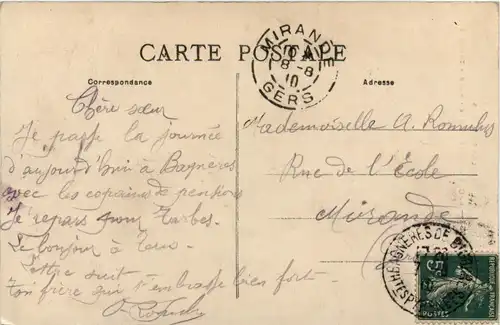 CARTE POSTALE
MIRANDE
8-8
10
GERS
Correspondance
Adresse
Chère sœur
Je passe la journée
d'aujourd'hui à Bagnères
avec les copains de pension
Je repars pour Tarbes.
Le bonjour à tous.
Lettre suit
Ton frère qui t'embrasse bien fort.
Mademoiselle A. Romulus
Rue de l'École
Mirande
BAGNÈRES DE
POSTES